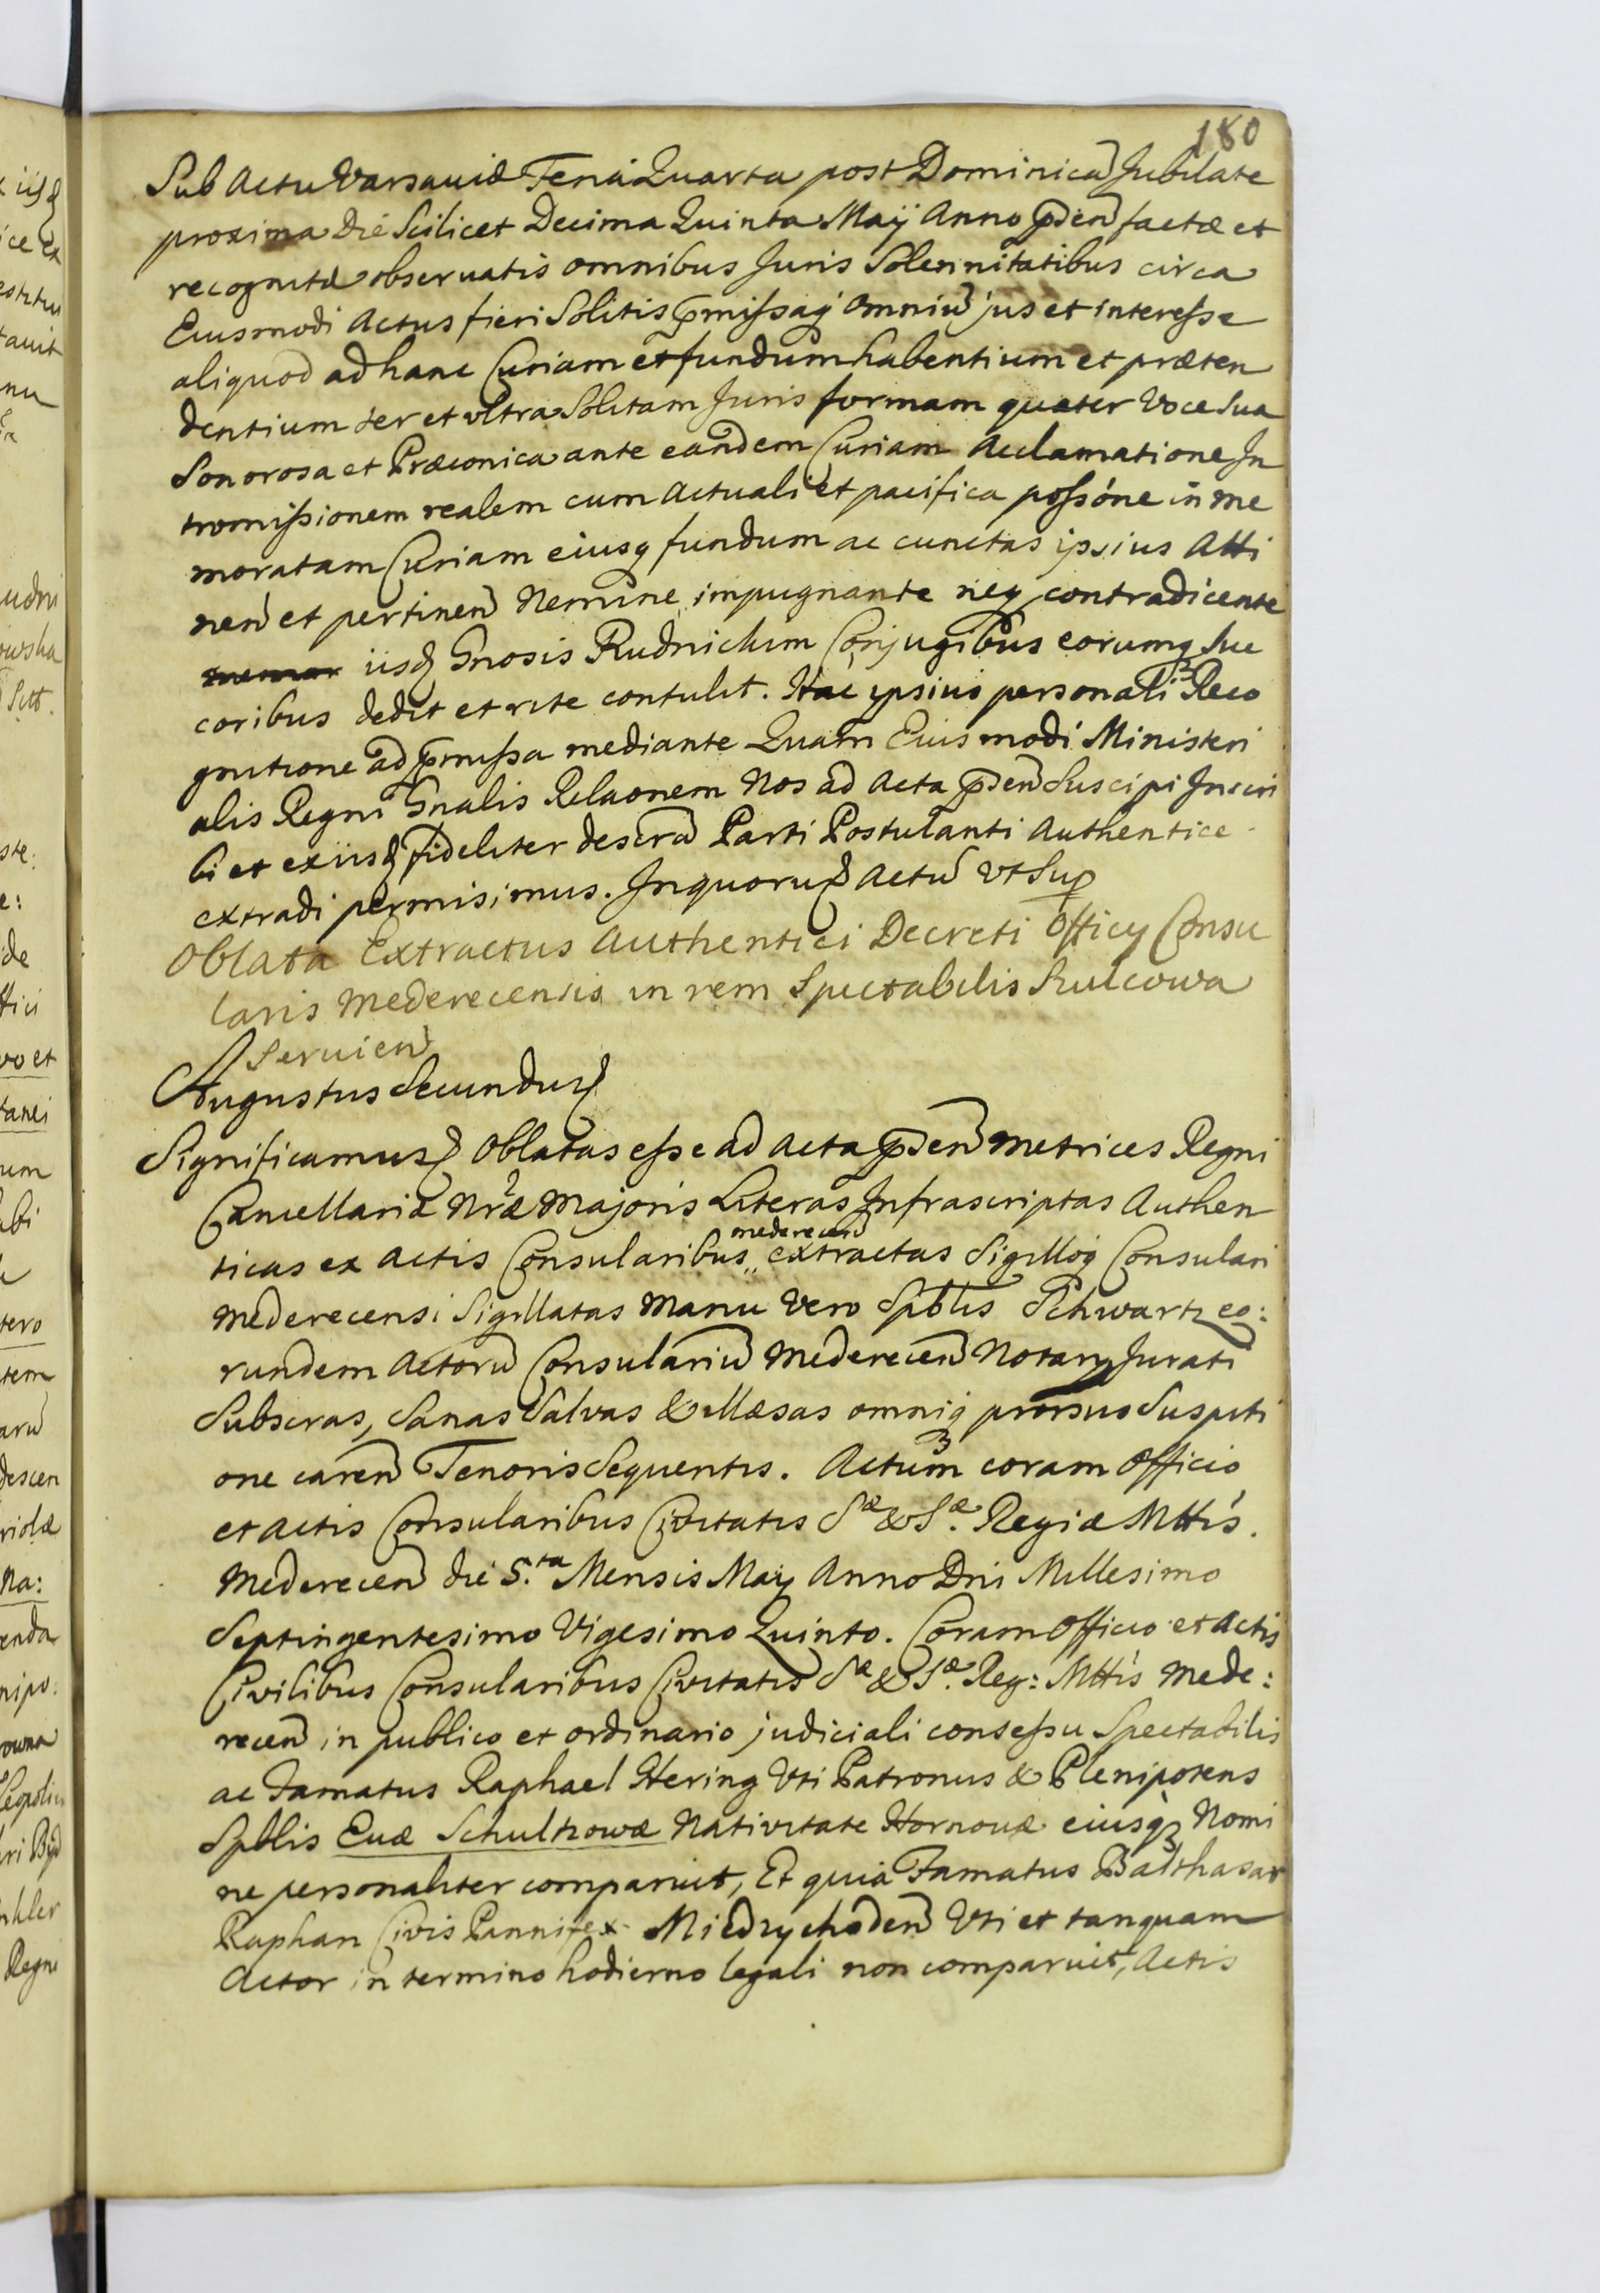 180
Sub Actu Varsaviæ Feria Quarta post Dominicā Jubilate
proxima die Scilicet Decima Quinta Maij Anno pñsen factæ et
recognitæ observatis omnibus Juris Solennitatibus circa
Eiusmodi Actus fieri Solitis pmissaq omniū jus et interesse
aliquod ad hanc Curiam et fundum habentium et præten
dentium ter et ultra Solitam Juris formam quater Voce Sua
Sonorosa et Præconica ante eandem Curiam Acclamatione In
tromissionem realem cum actuali et pacifica possóne in me
moratam Curiam eiusq fundum ac cunctas ipsius Atti
nen et pertinen Nemine impugnante neq contradicente
iisd Gnosis Rudnickim Conjugibus eorumq suc
coribus dedit et rite contulit. Hac ipsius personali Reco
gnitione ad pmissa mediante Quam Eiusmodi Ministeri
alis Regni Gnalis Relaonem Nos ad Acta pñsen Suscipi Inscri
bi et ex iisd fideliter descra Parti Postulanti Authentice
extradi permisimus. In quorū Actū Vt Sup
Oblata Extractus Authentici Decreti Officij Consu
laris Mederecensis in rem Spectabilis Sulcowa
Servien
Augustus Secundus
Significamus Oblatas esse ad Acta pñsen Metrices Regni
Cancellariæ Nræ Majoris Literas Infrascriptas Authen
ticas ex Actis Consularibus mederecen extractas Sigilloq Consulari
Mederecensi Sigillatas Manu Vero Spblis Schwartz eo:
rundem Actorū Consulariū Mederecen Notarij Jurati
Subscras, Sanas Salvas & illæsas omniq prorsus Suspiti
one caren Tenoris Sequentis. Actum coram Officio
et Actis Consularibus Civitatis Sæ & Sæ. Regiæ Mttis.
Mederecen die 5.ta Mensis Maij Anno Dni Millesimo
Septingentesimo Vigesimo Quinto. Coram Officio et Actis
Civilibus Consularibus Civitatis Sæ & Sæ. Reg: Mttis Mede:
recen in publico et ordinario judiciali consessu Spectabilis
ac Famatus Raphael Hering Vti Patronus & Plenipotens
Spblis Evæ Schultzowæ Nativitate Hornovæ eiusq Nomi
ne personaliter comparuit, Et quia Famatus Balthasar
Raphan Civis Pannifex Miedzychoden Vti et tanquam
Actor in termino hodierno legali non comparuit, Actis